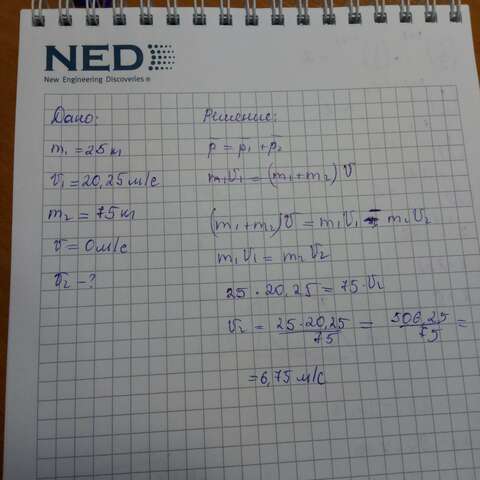 NED
New Engineering Discoveries®
Дано:
m₁ = 25 кг
V₁ = 20,25 м/с
m₂ = 75 кг
V = 0 м/с
V₂ - ?
Решение:
p̅ = p̅₁ + p̅₂
m₁V₁ = (m₁ + m₂) V
(m₁ + m₂) V = m₁V₁ - m₂V₂
m₁V₁ = m₂V₂
25 · 20,25 = 75 · V₂
V₂ = 25 · 20,25 / 75 = 506,25 / 75 =
= 6,75 м/с